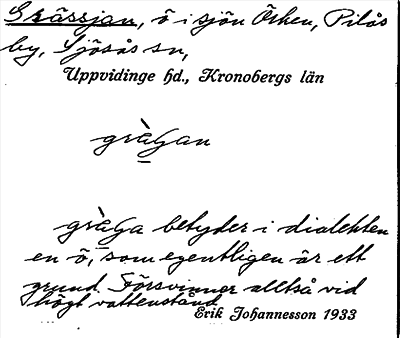 Grässjan, ö i sjön Örken, Pilås
by, Sjösås sn,
Uppvidinge hd., Kronobergs län
gràʃan
gràʃa betyder i dialekten
en ö, som egentligen är ett
grund. Försvinner alltså vid
högt vattenstånd
Erik Johannesson 1933